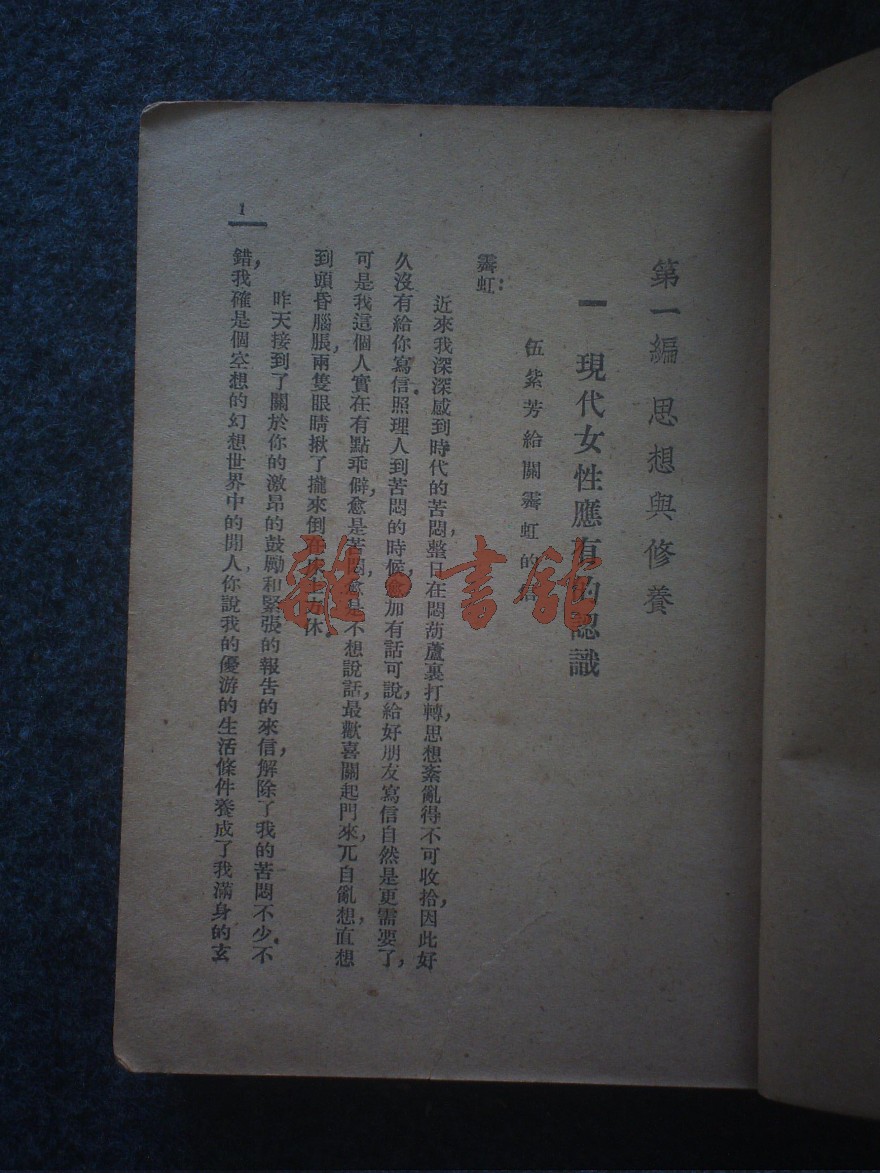 第一編 思想與修養
一 現代女性應有的認識
伍紫芳給關霽虹的信
霽虹：
近來我深深感到時代的苦悶，整日在悶葫蘆裏打轉，思想紊亂得不可收拾，因此好
久沒有給你寫信。照理人到苦悶的時候，愈加有話可說，給好朋友寫信自然是更需要了，
可是我這個人實在有點乖僻，愈是苦悶，愈是不想說話，最歡喜關起門來，兀自亂想，直想
到頭昏腦脹，兩雙眼睛揪了攏來，倒在床上方休。
昨天接到了關於你的激昂的鼓勵和緊張的報告的來信，解除了我的苦悶不少。不
錯，我確是個空想的幻想世界中的閒人，你說我的優游的生活條件養成了我滿身的玄
1
雜·書館